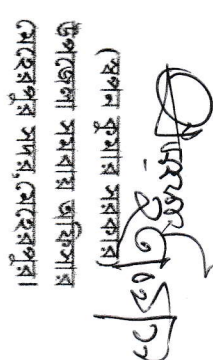 (স্বপন কুমার সরকার)
উপজেলা সমবায় অফিসার
মেহেরপুর সদর, মেহেরপুর।